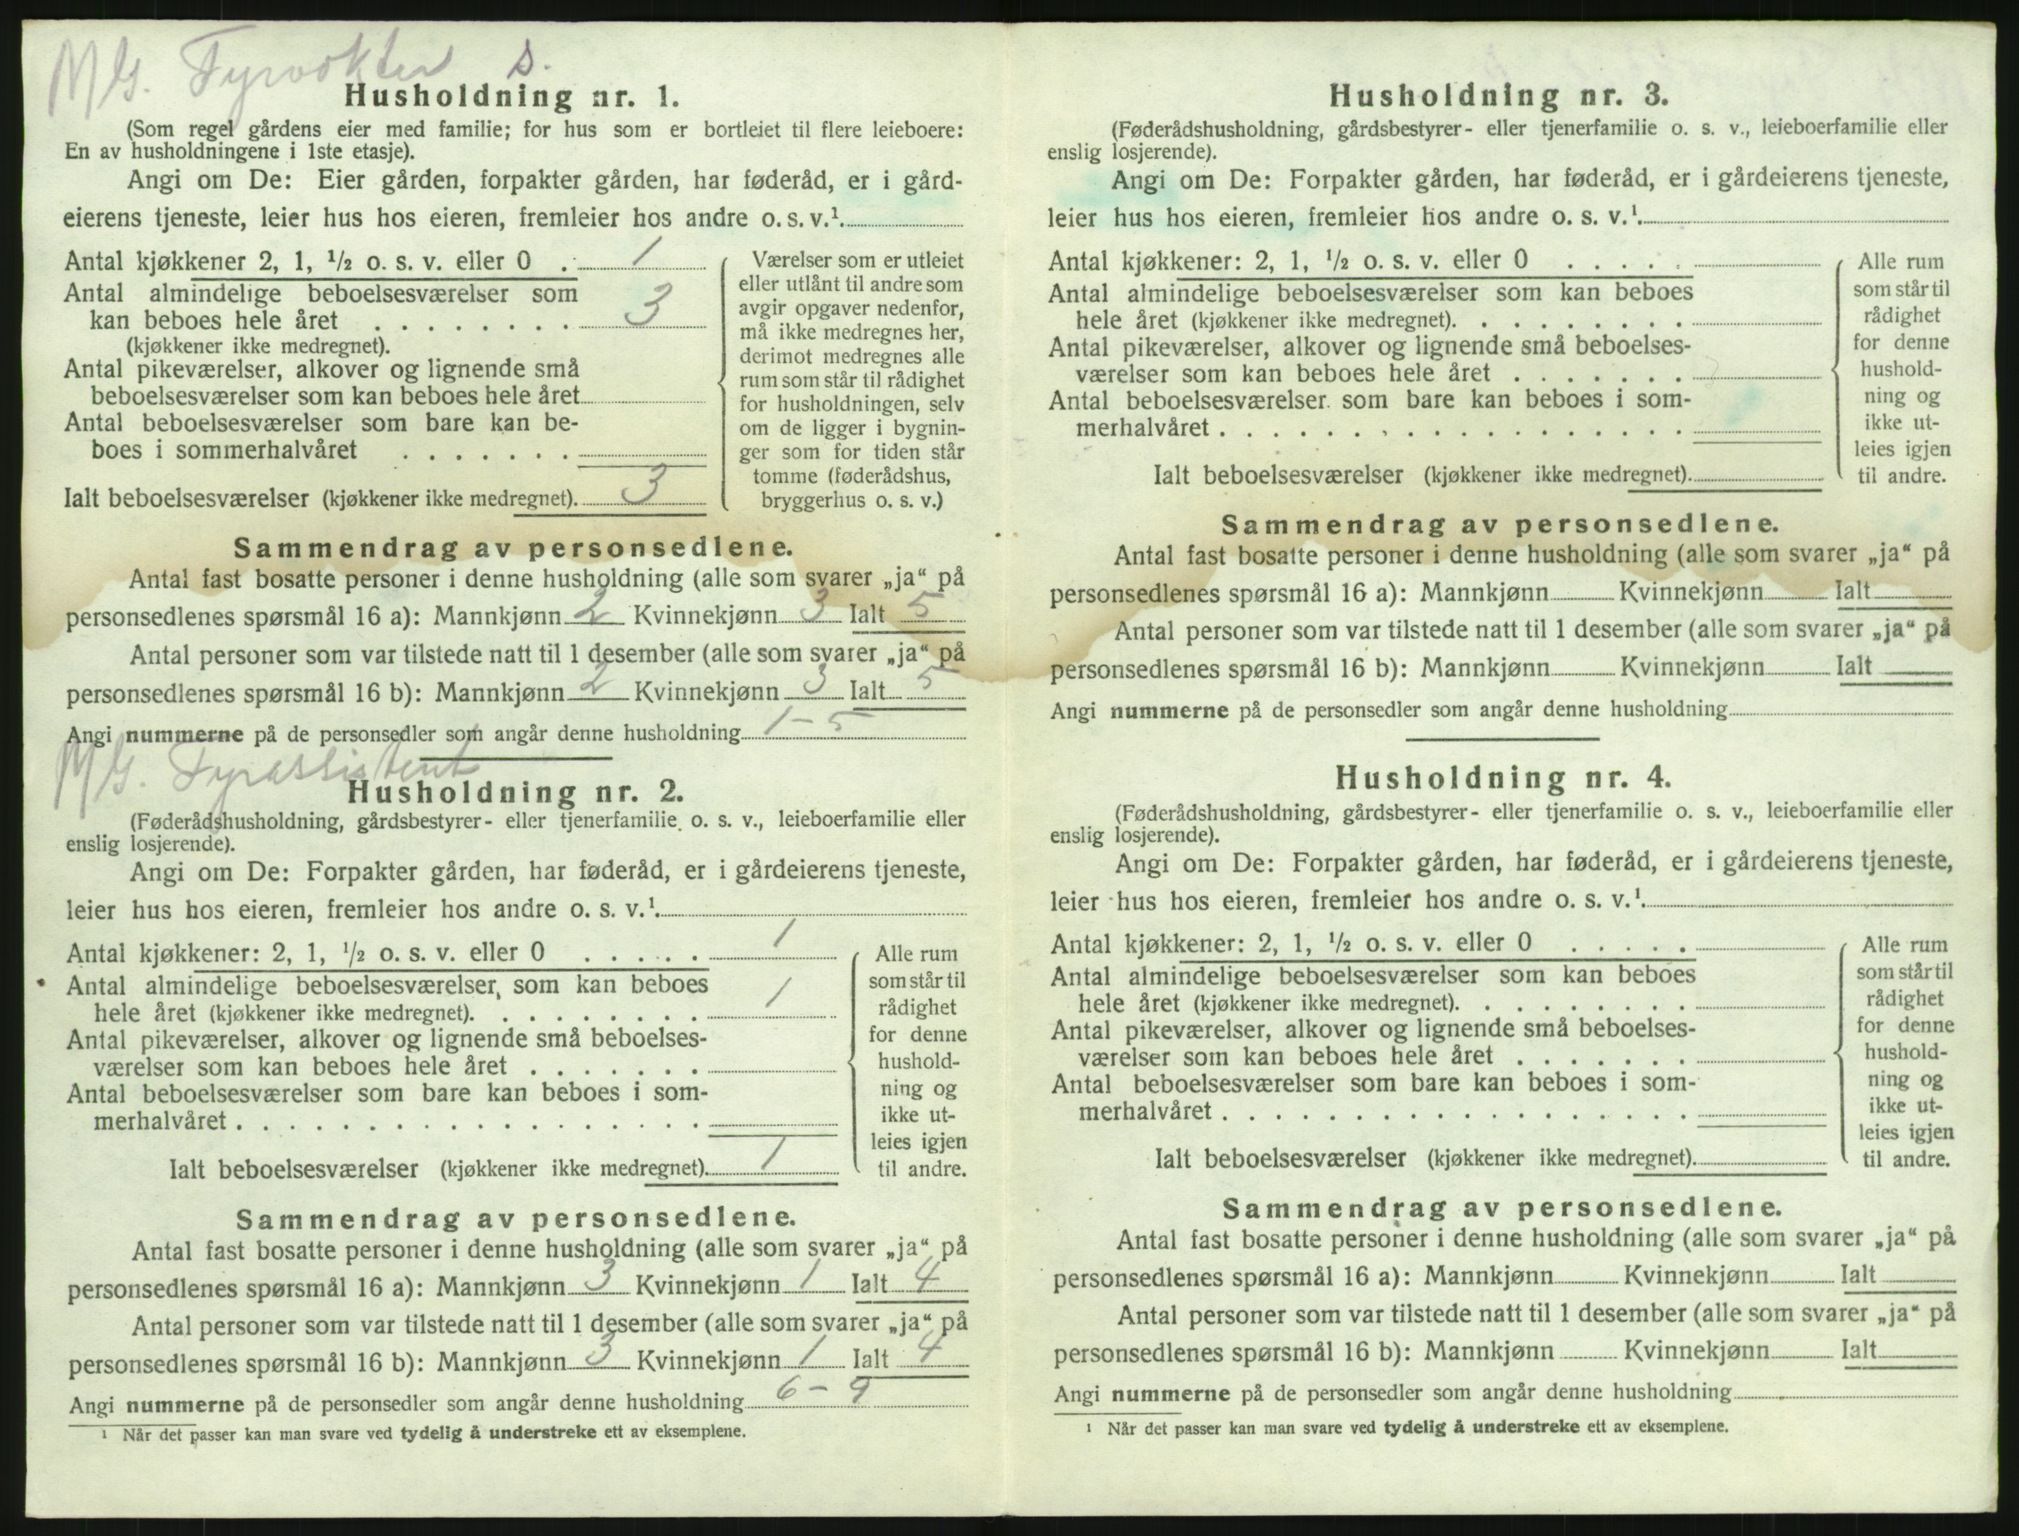 MG. Fyrvokter s.
Husholdning nr. 1.
(Som regel gårdens eier med familie; for hus som er bortleiet til flere leieboere:
En av husholdningene i 1ste etasje).
Angi om De: Eier gården, forpakter gården, har føderåd, er i gård-
eierens tjeneste, leier hus hos eieren, fremleier hos andre o. s. v.¹.
Antal kjøkkener 2, 1, ½ o. s. v. eller 0 . 1
Antal almindelige beboelsesværelser som
kan beboes hele året . . . . . . . . 3
(kjøkkener ikke medregnet).
Antal pikeværelser, alkover og lignende små
beboelsesværelser som kan beboes hele året
Antal beboelsesværelser som bare kan be-
boes i sommerhalvåret . . . . . . .
Ialt beboelsesværelser (kjøkkener ikke medregnet). 3
Værelser som er utleiet
eller utlånt til andre som
avgir opgaver nedenfor,
må ikke medregnes her,
derimot medregnes alle
rum som står til rådighet
for husholdningen, selv
om de ligger i bygnin-
ger som for tiden står
tomme (føderådshus,
bryggerhus o. s. v.)
Sammendrag av personsedlene.
Antal fast bosatte personer i denne husholdning (alle som svarer „ja“ på
personsedlenes spørsmål 16 a): Mannkjønn 2 Kvinnekjønn 3 Ialt 5
Antal personer som var tilstede natt til 1 desember (alle som svarer „ja“ på
personsedlenes spørsmål 16 b): Mannkjønn 2 Kvinnekjønn 3 Ialt 5
Angi nummerne på de personsedler som angår denne husholdning 1-5
MG. Fyrassistent
Husholdning nr. 2.
(Føderådshusholdning, gårdsbestyrer- eller tjenerfamilie o. s. v., leieboerfamilie eller
enslig losjerende).
Angi om De: Forpakter gården, har føderåd, er i gårdeierens tjeneste,
leier hus hos eieren, fremleier hos andre o. s. v.¹.
Antal kjøkkener: 2, 1, ½ o. s. v. eller 0 . . . . . 1
Antal almindelige beboelsesværelser, som kan beboes
hele året (kjøkkener ikke medregnet). . . . . . . . . 1
Antal pikeværelser, alkover og lignende små beboelses-
værelser som kan beboes hele året . . . . . . .
Antal beboelsesværelser som bare kan beboes i som-
merhalvåret . . . . . . . . . . . . . . . . . .
Ialt beboelsesværelser (kjøkkener ikke medregnet). 1
Alle rum
som står til
rådighet
for denne
hushold-
ning og
ikke ut-
leies igjen
til andre.
Sammendrag av personsedlene.
Antal fast bosatte personer i denne husholdning (alle som svarer „ja“ på
personsedlenes spørsmål 16 a): Mannkjønn 3 Kvinnekjønn 1 Ialt 4
Antal personer som var tilstede natt til 1 desember (alle som svarer „ja“ på
personsedlenes spørsmål 16 b): Mannkjønn 3 Kvinnekjønn 1 Ialt 4
Angi nummerne på de personsedler som angår denne husholdning 6-9
¹ Når det passer kan man svare ved tydelig å understreke ett av eksemplene.
Husholdning nr. 3.
(Føderådshusholdning, gårdsbestyrer- eller tjenerfamilie o. s. v., leieboerfamilie eller
enslig losjerende).
Angi om De: Forpakter gården, har føderåd, er i gårdeierens tjeneste,
leier hus hos eieren, fremleier hos andre o. s. v.¹.
Antal kjøkkener: 2, 1, ½ o. s. v. eller 0 . . . . .
Antal almindelige beboelsesværelser som kan beboes
hele året (kjøkkener ikke medregnet). . . . . . . . .
Antal pikeværelser, alkover og lignende små beboelses-
værelser som kan beboes hele året . . . . . . .
Antal beboelsesværelser som bare kan beboes i som-
merhalvåret . . . . . . . . . . . . . . . . . .
Ialt beboelsesværelser (kjøkkener ikke medregnet).
Alle rum
som står til
rådighet
for denne
hushold-
ning og
ikke ut-
leies igjen
til andre.
Sammendrag av personsedlene.
Antal fast bosatte personer i denne husholdning (alle som svarer „ja“ på
personsedlenes spørsmål 16 a): Mannkjønn Kvinnekjønn Ialt
Antal personer som var tilstede natt til 1 desember (alle som svarer „ja“ på
personsedlenes spørsmål 16 b): Mannkjønn Kvinnekjønn Ialt
Angi nummerne på de personsedler som angår denne husholdning
Husholdning nr. 4.
(Føderådshusholdning, gårdsbestyrer- eller tjenerfamilie o. s. v., leieboerfamilie eller
enslig losjerende).
Angi om De: Forpakter gården, har føderåd, er i gårdeierens tjeneste,
leier hus hos eieren, fremleier hos andre o. s. v.¹.
Antal kjøkkener: 2, 1, ½ o. s. v. eller 0 . . . . .
Antal almindelige beboelsesværelser som kan beboes
hele året (kjøkkener ikke medregnet). . . . . . . . .
Antal pikeværelser, alkover og lignende små beboelses-
værelser som kan beboes hele året . . . . . . .
Antal beboelsesværelser som bare kan beboes i som-
merhalvåret . . . . . . . . . . . . . . . . . .
Ialt beboelsesværelser (kjøkkener ikke medregnet).
Alle rum
som står til
rådighet
for denne
hushold-
ning og
ikke ut-
leies igjen
til andre.
Sammendrag av personsedlene.
Antal fast bosatte personer i denne husholdning (alle som svarer „ja“ på
personsedlenes spørsmål 16 a): Mannkjønn Kvinnekjønn Ialt
Antal personer som var tilstede natt til 1 desember (alle som svarer „ja“ på
personsedlenes spørsmål 16 b): Mannkjønn Kvinnekjønn Ialt
Angi nummerne på de personsedler som angår denne husholdning
¹ Når det passer kan man svare ved tydelig å understreke ett av eksemplene.